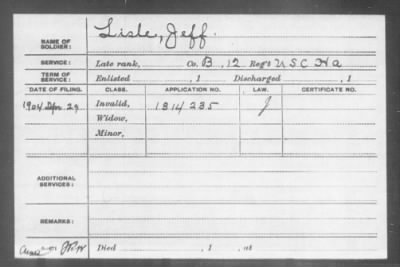 NAME OF SOLDIER: Lisle, Jeff.
SERVICE: Late rank, Co. B, 12 Reg't U S C H a
TERM OF SERVICE: Enlisted , 1 Discharged , 1
DATE OF FILING. CLASS. APPLICATION NO. LAW. CERTIFICATE NO.
1904 Apr 29 Invalid, 1314235 J
Widow,
Minor,
ADDITIONAL SERVICES:
REMARKS:
Died , 1 , at